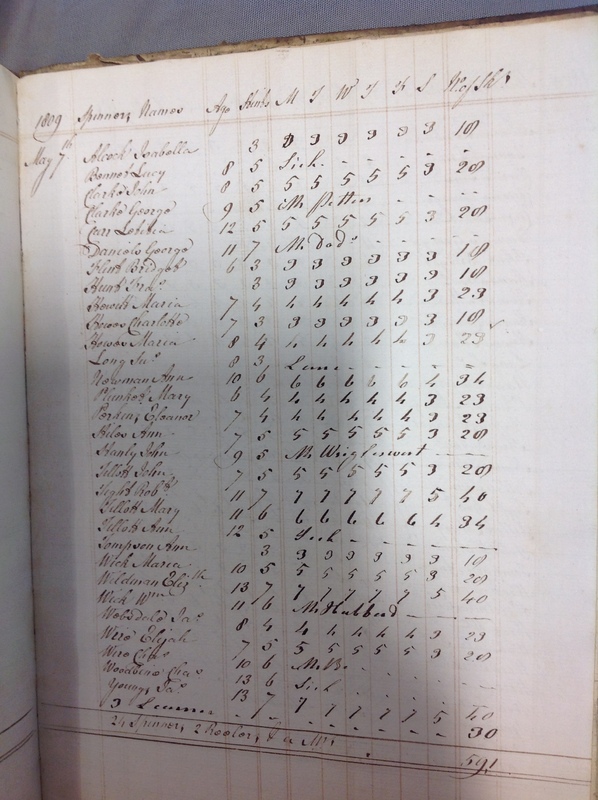 1809 Spinners Names Age Skeins M T W T F S N. of Sks
May 7th Alcock Isabella 3 3 3 3 3 3 3 18
Bennet Lucy 8 5 Sick - - - -
Clarke John 8 5 5 5 5 5 5 3 28
Clarke George 9 5 Mr Pettus - - -
Carr Letitia 12 5 5 5 5 5 5 3 28
Daniels George 11 7 Mr Dods - - - -
Flint Bridget 6 3 3 3 3 3 3 3 18
Hunt Fras 3 3 3 3 3 3 3 18
Hewitt Maria 7 4 4 4 4 4 4 3 23
Howes Charlotte 7 3 3 3 3 3 3 3 18
Howes Maria 8 4 4 4 4 4 4 3 23
Long Sus 8 3 Lame - - - -
Newman Ann 10 6 6 6 6 6 6 4 34
Plunket Mary 6 4 4 4 4 4 4 3 23
Perkins Eleanor 7 4 4 4 4 4 4 3 23
Stiles Ann 7 5 5 5 5 5 5 3 28
Stanly John 9 5 Mr Wriglesworth - - -
Tillott John 7 5 5 5 5 5 5 3 28
Tight Robt 11 7 7 7 7 7 7 5 40
Tillott Mary 11 6 6 6 6 6 6 4 34
Tillott Ann 12 5 Sick - - - -
Tompson Ann 3 3 3 3 3 3 3 18
Wick Maria 10 5 5 5 5 5 5 3 28
Wildman Elizth 13 7 7 7 7 7 7 5 40
Wick Wm 11 6 Mr Hubbard - - -
Jas 8 4 4 4 4 4 4 3 23
Elijah 7 5 5 5 5 5 5 3 28
Chas 10 6 Mr B. - - - -
Woodbine Chas 13 6 Sick - - - -
Young Jas 13 7 7 7 7 7 7 5 40
3 Learners - - - - - - - - 30
24 Spinners, 2 Reelers, & a Mrs
591